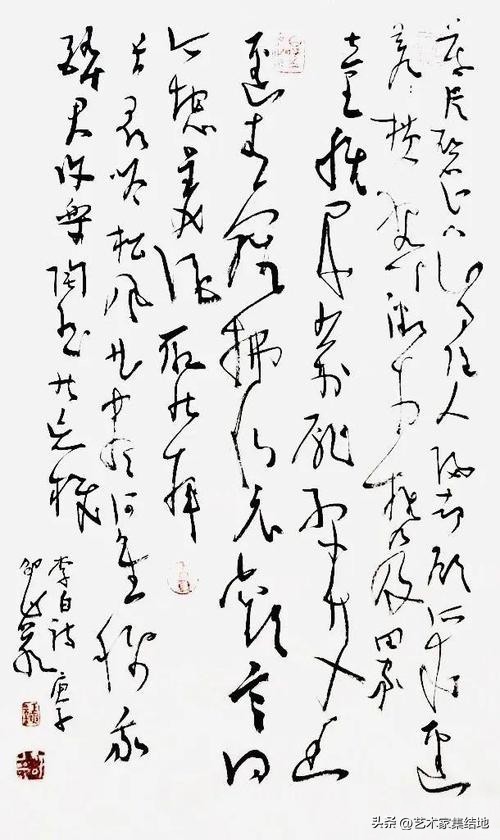 暮从碧山下山月随人归却顾所来径
苍苍横翠微相携及田家
童稚开荆扉绿竹入幽
径青萝拂行衣欢言得
所憩美酒聊共挥
长歌吟松风曲尽河星稀我
醉君复乐陶然共忘机
李白诗 庚子
邵岩
头条 @艺术家集结地